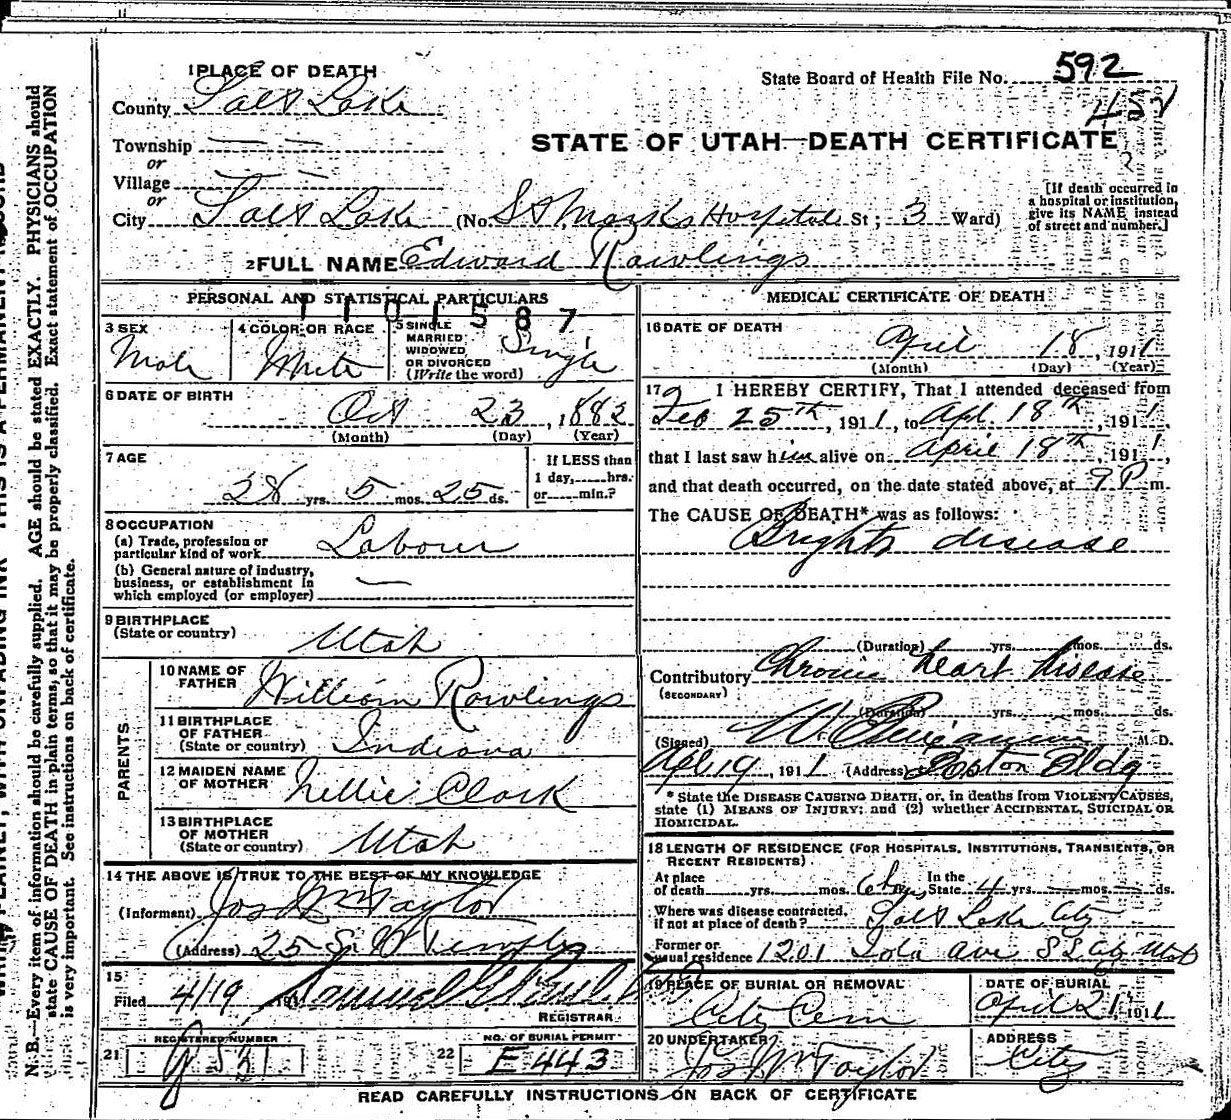 State Board of Health File No. 592
1 PLACE OF DEATH
County Salt Lake
STATE OF UTAH—DEATH CERTIFICATE
Township — —
or
Village — —
or
City Salt Lake (No. St Marks Hospital St; 3 Ward)
[If death occurred in
a hospital or institution,
give its NAME instead
of street and number.]
2 FULL NAME Edward Rawlings
PERSONAL AND STATISTICAL PARTICULARS
1101587
3 SEX
Male
4 COLOR OR RACE
White
5 SINGLE
MARRIED
WIDOWED
OR DIVORCED
(Write the word)
Single
6 DATE OF BIRTH
Oct 23, 1882
(Month) (Day) (Year)
7 AGE
28 yrs. 5 mos. 25 ds.
If LESS than
1 day,......hrs.
or......min.?
8 OCCUPATION
(a) Trade, profession or
particular kind of work Labour
(b) General nature of industry,
business, or establishment in
which employed (or employer) —
9 BIRTHPLACE
(State or country) Utah
PARENTS
10 NAME OF
FATHER William Rawlings
11 BIRTHPLACE
OF FATHER
(State or country) Indiana
12 MAIDEN NAME
OF MOTHER Nellie Clark
13 BIRTHPLACE
OF MOTHER
(State or country) Utah
14 THE ABOVE IS TRUE TO THE BEST OF MY KNOWLEDGE
(Informant) Jos Wm Taylor
(Address) 25 So W Temple
15
Filed 4/19 191
REGISTRAR
REGISTERED NUMBER
21
NO. OF BURIAL PERMIT
22 E 443
MEDICAL CERTIFICATE OF DEATH
16 DATE OF DEATH
April 18, 1911
(Month) (Day) (Year)
17 I HEREBY CERTIFY, That I attended deceased from
Feb 25th, 1911, to Apl. 18th, 1911,
that I last saw him alive on April 18th, 1911,
and that death occurred, on the date stated above, at 9 P m.
The CAUSE OF DEATH* was as follows:
Brights disease
(Duration) yrs. mos. ds.
Contributory Chronic heart disease
(SECONDARY)
(Duration) yrs. mos. ds.
(Signed) M. D.
Apl 19, 1911 (Address) Boston Bldg
* State the DISEASE CAUSING DEATH, or, in deaths from VIOLENT CAUSES,
state (1) MEANS OF INJURY; and (2) whether ACCIDENTAL, SUICIDAL OR
HOMICIDAL.
18 LENGTH OF RESIDENCE (FOR HOSPITALS, INSTITUTIONS, TRANSIENTS, OR
RECENT RESIDENTS)
At place
of death yrs. mos. In the
State yrs. — mos. — ds.
Where was disease contracted,
if not at place of death? Salt Lake City
Former or
usual residence 1201 Iola Ave S L City Utah
19 PLACE OF BURIAL OR REMOVAL
City Cem
DATE OF BURIAL
April 21, 1911
20 UNDERTAKER
Jos Wm Taylor
ADDRESS
City
READ CAREFULLY INSTRUCTIONS ON BACK OF CERTIFICATE
N. B.—Every item of information should be carefully supplied. AGE should be stated EXACTLY. PHYSICIANS should
state CAUSE OF DEATH in plain terms, so that it may be properly classified. Exact statement of OCCUPATION
is very important. See instructions on back of certificate.